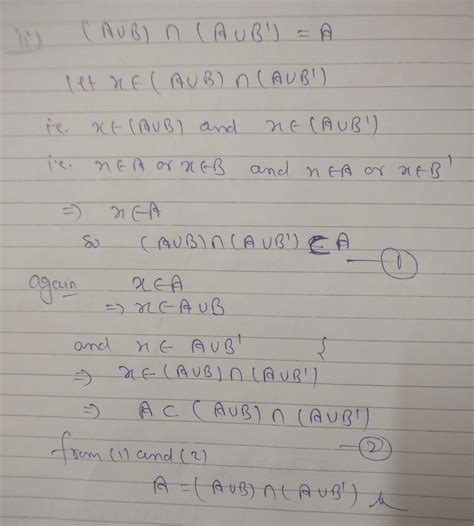 iii) (A∪B) ∩ (A∪B') = A
let x∈(A∪B) ∩ (A∪B')
i.e. x∈(A∪B) and x∈(A∪B')
i.e. x∈A or x∈B and x∈A or x∈B'
⇒ x∈A
So (A∪B)∩(A∪B') ⊂ A — ①
again x∈A
⇒ x∈A∪B
and x∈ A∪B' }
⇒ x∈(A∪B)∩(A∪B')
⇒ A⊂ (A∪B)∩(A∪B') — ②
from (1) and (2)
A = (A∪B)∩(A∪B')